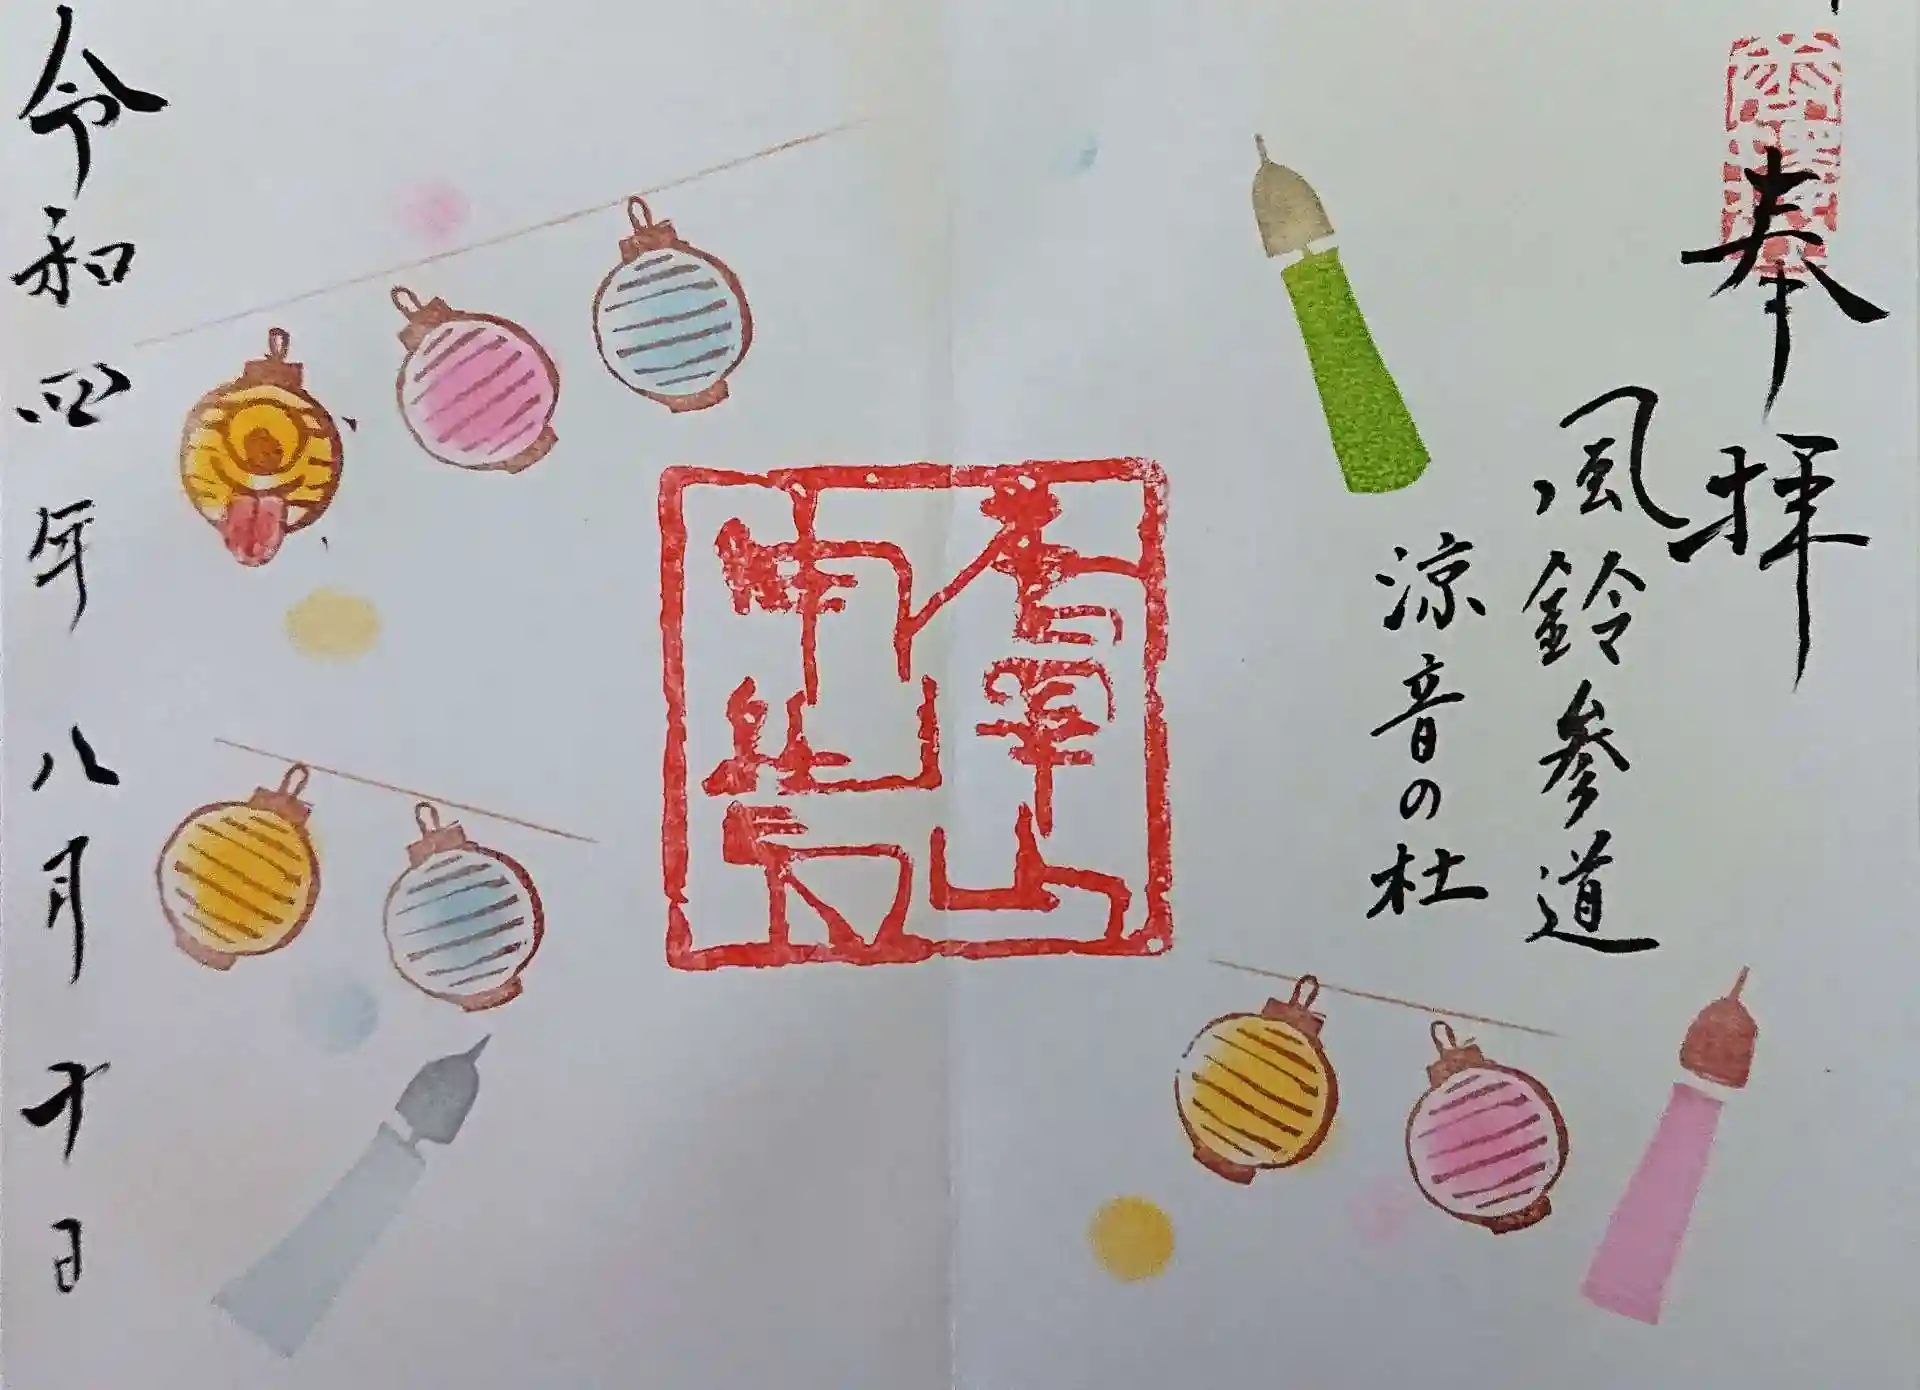 奉拝
風鈴参道
涼音の杜
令和四年八月十日